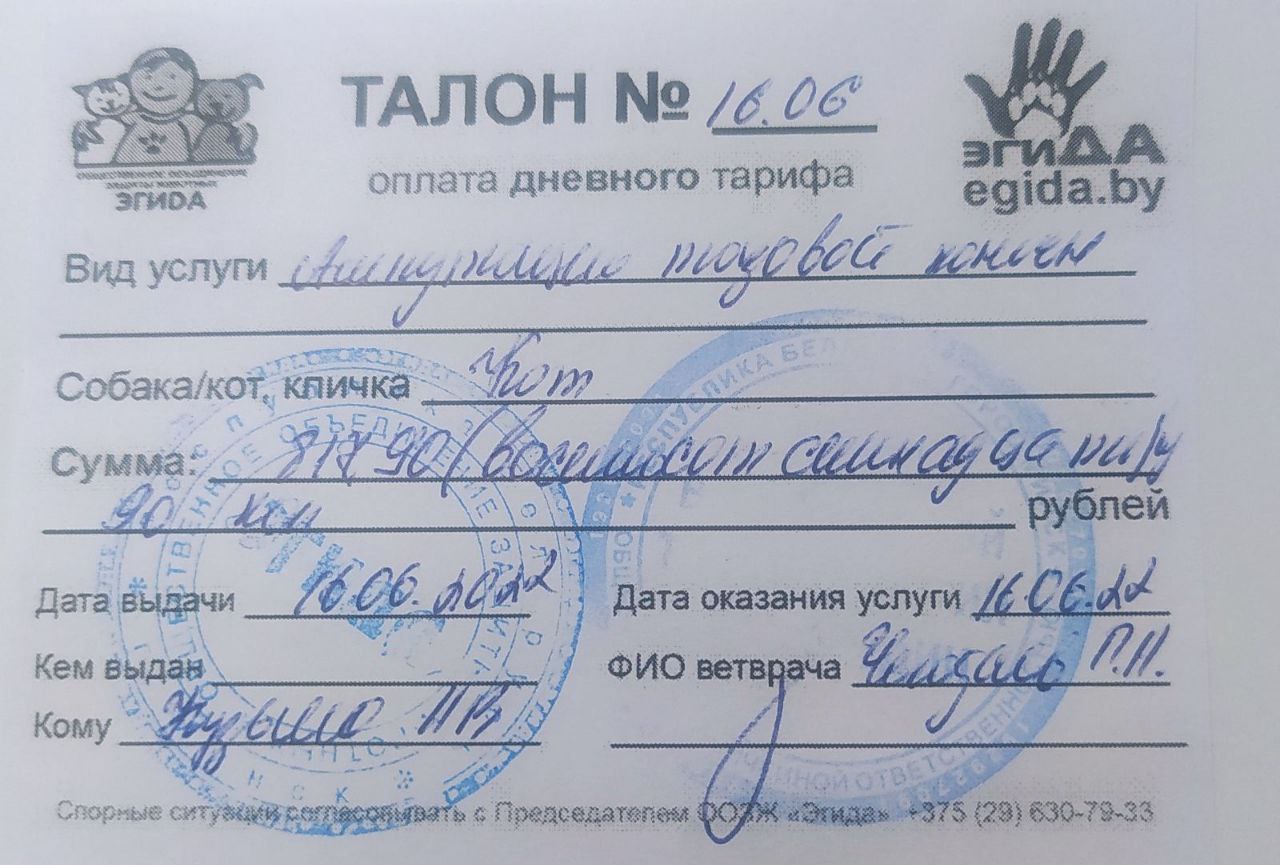 ТАЛОН № 16.06
оплата дневного тарифа
ЭГИДА
эгиДА
egida.by
Вид услуги Ампутация тазовой конечн
Собака/кот, кличка Кот
Сумма: 817 90 (восемьсот семнадцать ру
90 коп рублей
Дата выдачи 16.06.2022 Дата оказания услуги 16.06.22
Кем выдан ФИО ветврача П.П.
Кому ПВ
Спорные ситуации согласовывать с Председателем ООЗЖ «Эгида» +375 (29) 630-79-33
ОБЩЕСТВЕННОЕ ОБЪЕДИНЕНИЕ ЗАЩИТЫ
РЕСПУБЛИКА БЕЛ